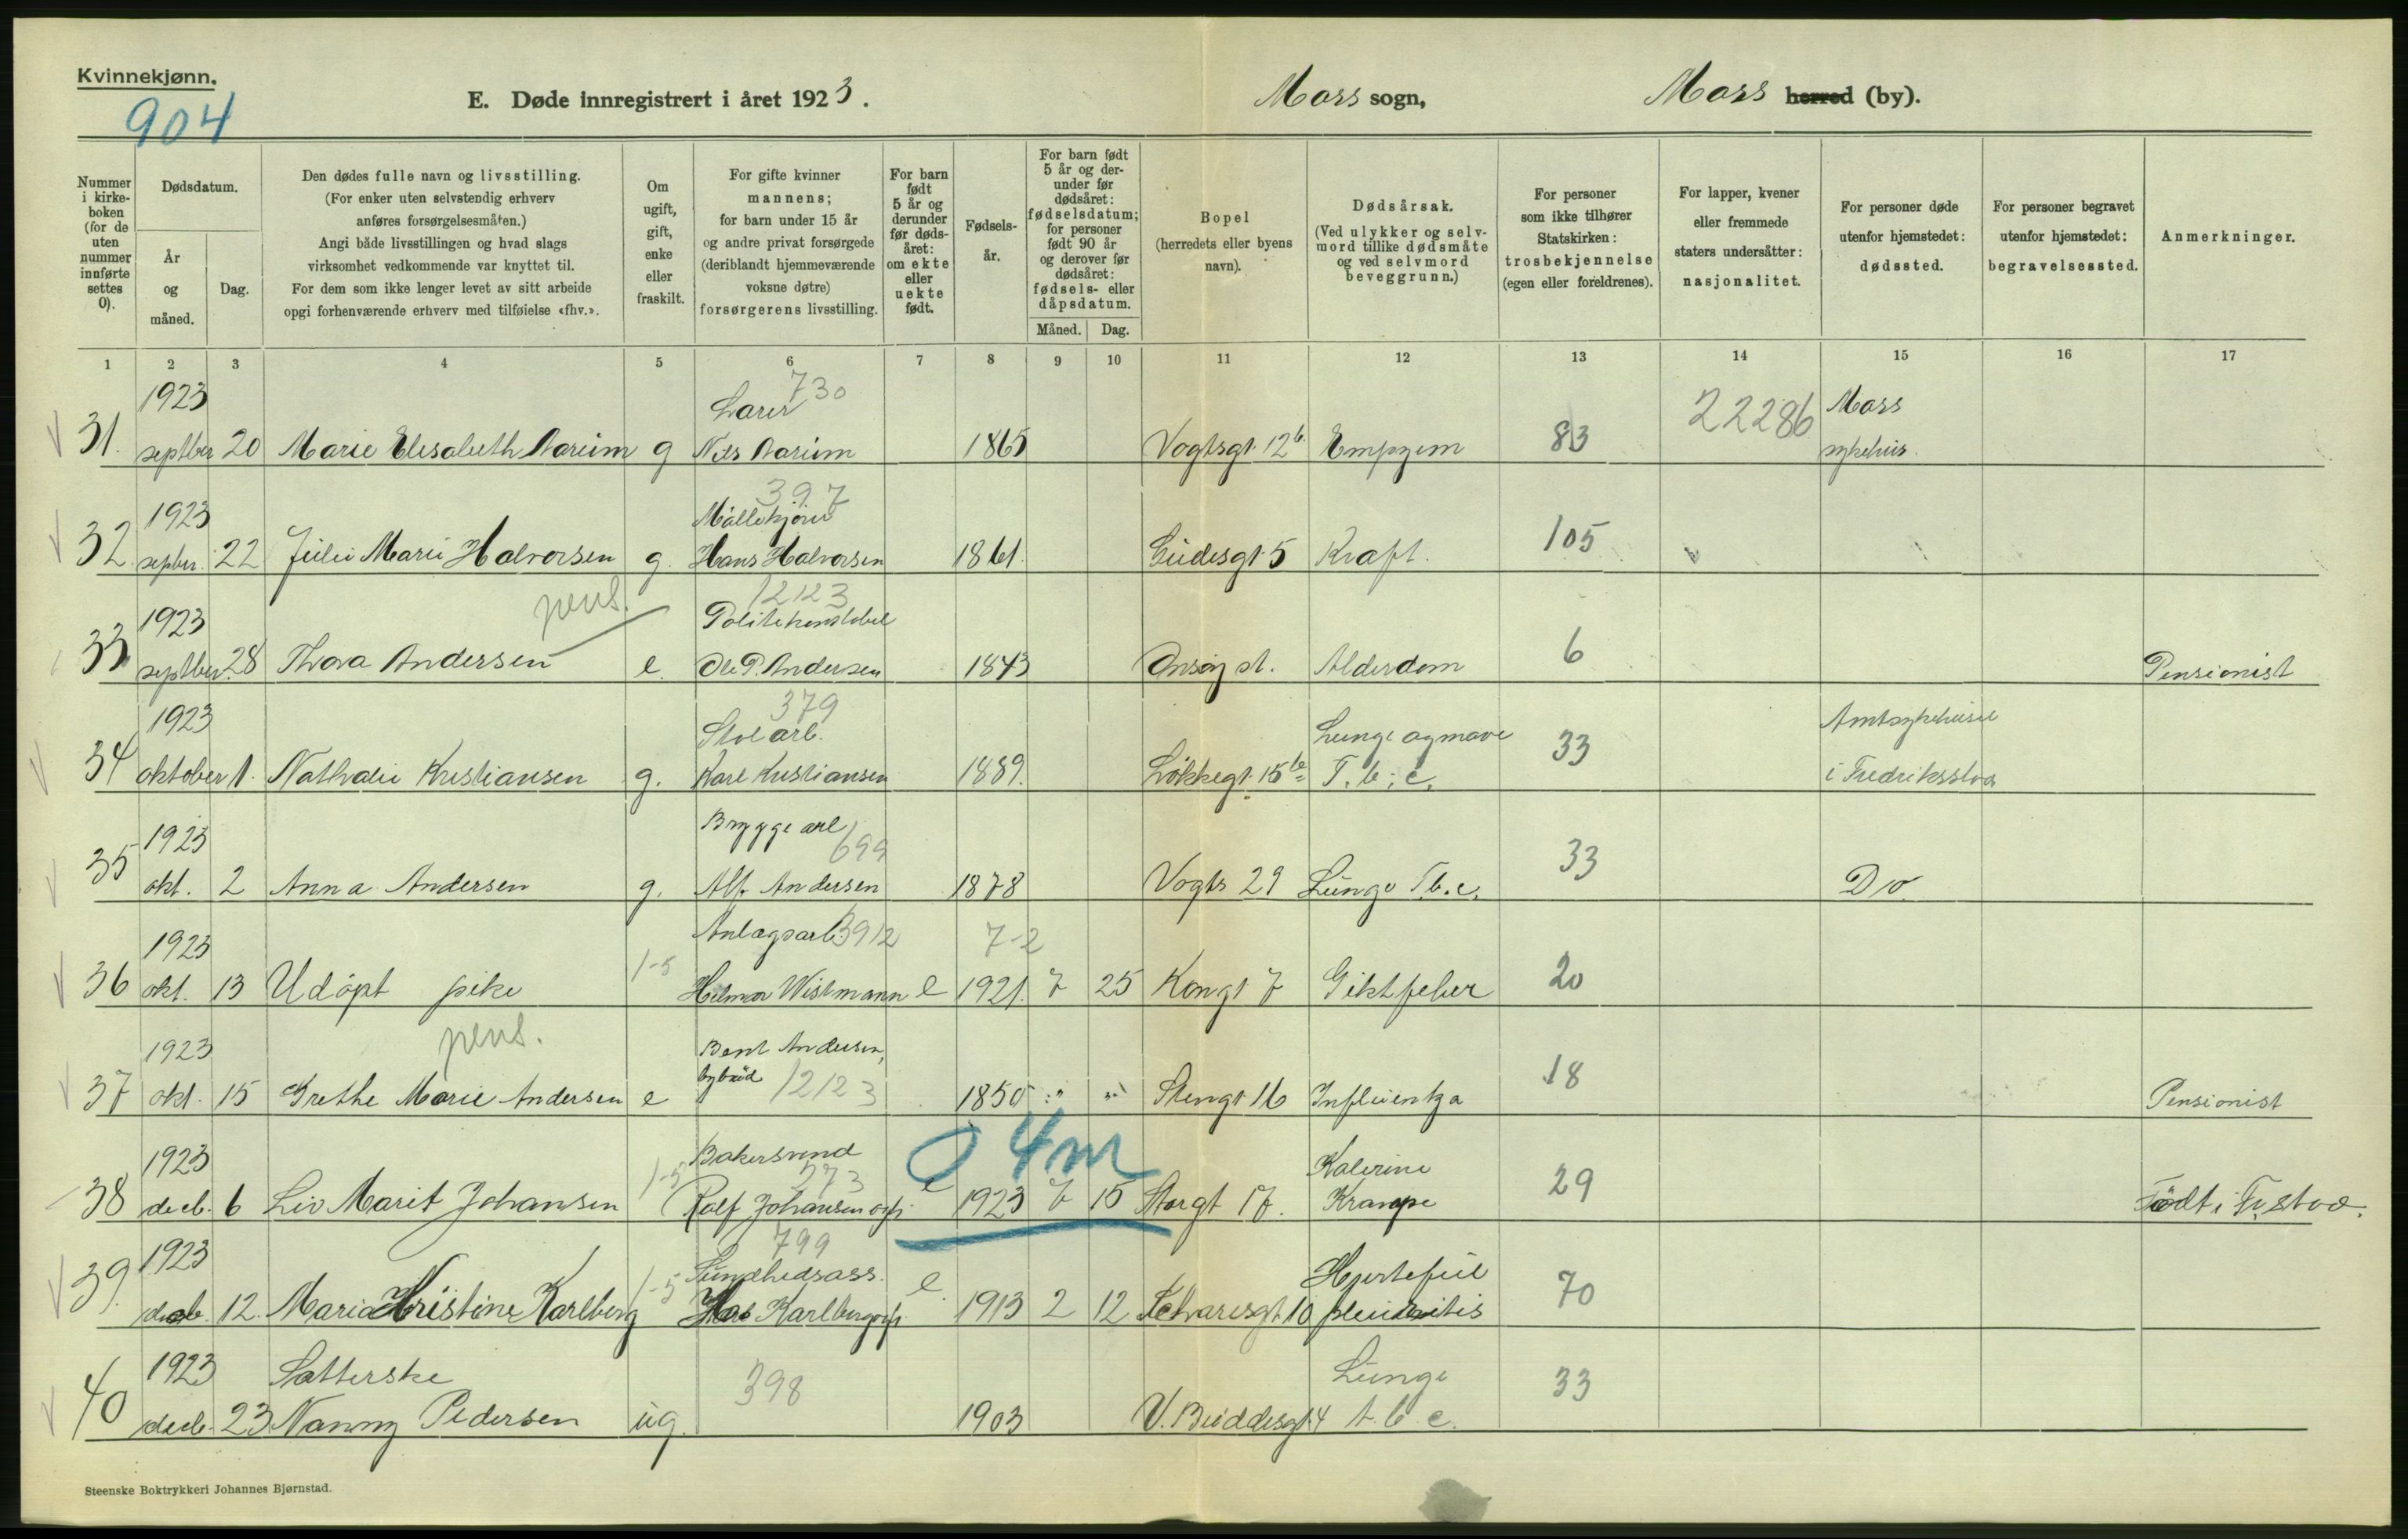 Kvinnekjønn.
904
E. Døde innregistrert i året 1923.
Moss sogn,
Moss herred (by).
Nummer i kirkeboken (for de uten nummer innførte settes 0).
Dødsdatum.
År og måned.
Dag.
Den dødes fulle navn og livsstilling.
(For enker uten selvstendig erhverv
anføres forsørgelsesmåten.)
Angi både livsstillingen og hvad slags
virksomhet vedkommende var knyttet til.
For dem som ikke lenger levet av sitt arbeide
opgi forhenværende erhverv med tilføielse «fhv.».
Om ugift, gift, enke eller fraskilt.
For gifte kvinner
mannens;
for barn under 15 år
og andre privat forsørgede
(deriblandt hjemmeværende
voksne døtre)
forsørgerens livsstilling.
For barn født 5 år og derunder før dødsåret: om ekte eller uekte født.
Fødselsår.
For barn født 5 år og derunder før dødsåret: fødselsdatum; for personer født 90 år og derover før dødsåret: fødsels- eller dåpsdatum.
Måned. Dag.
Bopel
(herredets eller byens
navn).
Dødsårsak.
(Ved ulykker og selvmord tillike dødsmåte
og ved selvmord
beveggrunn.)
For personer
som ikke tilhører
Statskirken:
trosbekjennelse
(egen eller foreldrenes).
For lapper, kvener
eller fremmede
staters undersåtter:
nasjonalitet.
For personer døde
utenfor hjemstedet:
dødssted.
For personer begravet
utenfor hjemstedet:
begravelsessted.
Anmerkninger.
1 2 3 4 5 6 7 8 9 10 11 12 13 14 15 16 17
1923 730 22286 Moss
31. septber 20 Marie Elisabeth Aarum g Nils Aarum 1865 Vogtsgt. 12b. Empyem 83 sykehus.
1923 397
32 septber. 22 Julie Marie Halvorsen g. Hans Halvorsen 1861. 5 Kraft. 105
1923 pens. 1212 3 Politikonstabel
33 septber. 28 Thora Andersen e. Ole P. Andersen 1843 Alderdom 6 Pensionist
1923 379 Lunge og mave Amtsykehuset
34 oktober 1. Nathalie Kristiansen g. Karl Kristiansen 1889. Løkkegt. 15b T. b. c. 33 i Fredriksstad
1923 Bryggearb 699
35 okt. 2 Anna Andersen g. Alf. Andersen 1878 Vogts 29 Lunge T.b.c. 33 Do
1923 Anlagsarb. 3912 7-2
36 okt. 13 Udöpt pike 1-5 Hilmar Wistmann e 1921. 7 25 Kongt 7 Giktfeber 20
1923 pens. Bent Andersen,
37 okt. 15 Grethe Marie Andersen e bybud 1212 3 1850 " " Stengt 16 Influentza 18 Pensionist
1923 Bakersvend 0 4m Katerine
38 decb. 6 Liv Marit Johansen 1-5 273 Rolf Johansen e 1923 7 15 Storgt 17. Krampe 29 Födt i Fr.stad.
1923 799 Sundhedsass. Hjertefeil
39. decb. 12. Maria Kristine Karlberg 1-5 Karlberg e 1913 2 12 10 70
1923 Lunge
40 decb. 23 Nanny Pedersen ug. 398 1903 V. Buddesgt. 4 t. b. c. 33
Steenske Boktrykkeri Johannes Bjørnstad.